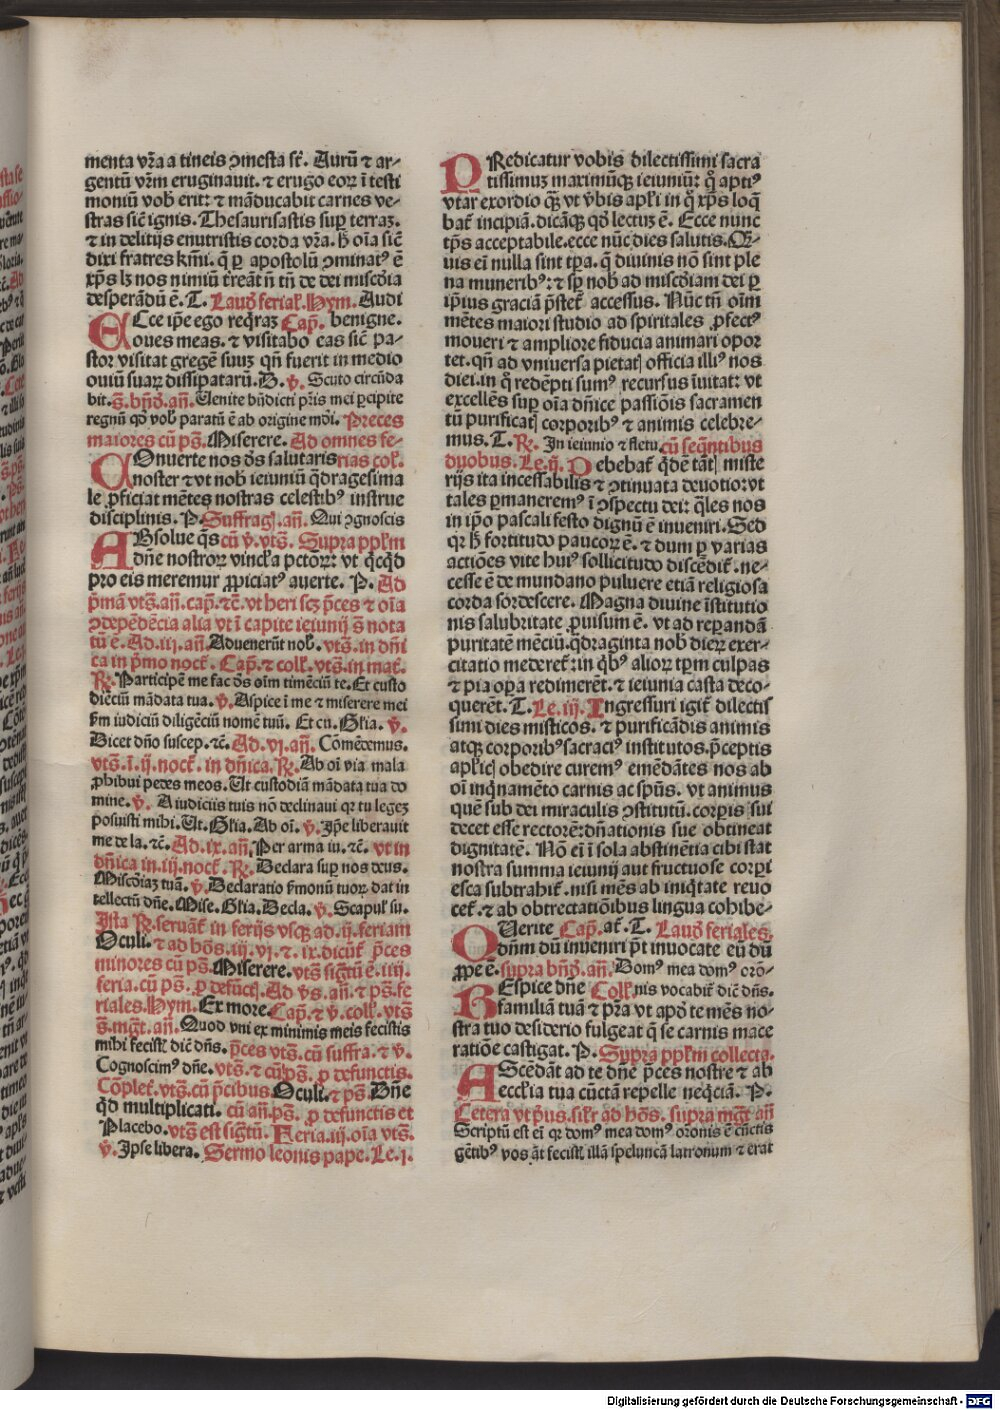 menta vr̃a a tineis ꝯmesta st̃. Aurū ⁊ ar-
gentū vr̃m eruginauit. ⁊ erugo eoꝝ ī testi
moniū vob̃ erit: ⁊ mãducabit carnes ve-
stras sic̃ ignis. Thesaurisastis sup̱ terraz.
⁊ in delitijs enutristis corda vr̃a. h̃ oĩa sic̃
dixi fratres km̃i. q̃ ꝑ apostolū ꝯminatꝰ ē
xp̃s lꝫ nos nimiū t̃reãt ñ tñ de dei misc̃dia
desperãdū ē. T. Laud̃ ferial̃. Hym. Audi
ECce ip̃e ego req̃raz Cap̃. benigne.
oues meas. ⁊ visitabo eas sic̃ pa-
stor visitat gregē suuz qñ fuerit in medio
ouiū suaꝝ dissipatarū. D. v̄. Scuto circũda
bit. s̄. bñd̃. añ. Uenite bñdicti pr̃is mei ꝑcipite
regnū qd̃ vob̃ paratū ē ab origine mũdi. Preces
maiores cū ps̄. Miserere. Ad omnes fe-
COnuerte nos d̃s salutaris rias col̃.
noster ⁊ vt nob̃ ieiuniū q̃dragesima
le ꝓficiat mẽtes nostras celestibꝰ instrue
disciplinis. P. Suffragi. añ. Qui ꝯgnoscis
ABsolue q̃s cū v̄. vts̄. Supra pp̃lm
dñe nostroꝝ vincl̃a pctoꝝ: vt q̃cq̃d
pro eis meremur ꝓpiciatꝰ auerte. P. Ad
p̃mã vts̄. añ. cap̃. ⁊c̃. vt heri scꝫ p̃ces ⁊ oĩa
ꝯdepẽdẽcia alia vt ī capite ieiunij s̄ nota
tū ē. Ad. iij. añ. Aduenerũt nob̃. vts̄. in dñi
ca in p̃mo noct̃. Cap̃. ⁊ coll̃. vts̄. in mat̃.
R̃. Participẽ me fac d̃s oĩm timẽciū te. Et custo
diẽciū mãdata tua. v̄. Aspice ī me ⁊ miserere mei
s̃m iudiciū diligẽciū nomẽ tuū. Et cu. Gl̃ia. v̄.
Dicet dño suscep. ⁊c̃. Ad. vj. añ. Comẽdemus.
vts̄. ī. ij. noct̃. in dñica. R̃. Ab oĩ via mala
ꝓhibui pedes meos. Ut custodiã mãdata tua do
mine. v̄. A iudiciis tuis nō declinaui qꝛ tu legez
posuisti mihi. Ut. Gl̃ia. Ab oĩ. v̄. Ip̃e liberauit
me de la. ⁊c̃. Ad. ix. añ. Per arma iu. ⁊c̃. vt in
dñica in. iij. noct̃. R̃. Declara sup̱ nos deus.
Misc̃diaz tuã. v̄. Declaratio s̃monū tuoꝝ dat in
tellectū dñe. Mise. Gl̃ia. Decla. v̄. Scapul̃ su.
Ista R̃. seruãt̃ in ferijs vsqꝫ ad. ij. feriam
Oculi. ⁊ ad hõs. iij. vj. ⁊. ix. dicũt̃ p̃ces
minores cū ps̄. Miserere. vts̄. sig̃tū ē. iiij.
feria. cū ps̄. ꝓ defũct̃. Ad v̄s. añ. ⁊ ps̄. fe
riales. Hym. Ex more. Cap̃. ⁊ v̄. coll̃. vts̄
s̄. mg̃t. añ. Quod vni ex minimis meis fecistis
mihi fecist̃ dic̃ dñs. p̃ces vts̄. cū suffra. ⁊ v̄.
Cognoscimꝰ dñe. vts̄. ⁊ cū ps̄. ꝓ defunctis.
Cõplet̃. vts̄. cū p̃cibus. Oculi. ⁊ ps̄. Bñe
q̃d multiplicati. cū añ. ps̄. ꝓ defunctis et
Placebo. vts̄ est sig̃tū. Feria. iij. oĩa vts̄.
v̄. Ipse libera. Sermo leonis pape. Le. j.
PRedicatur vobis dilectissimi sacra
tissimuz maximũqꝫ ieiuniū: q̃ aptiꝰ
vtar exordio q̃ꝫ vt v̄bis apl̃i in q̃ xp̃s loq̃
bat̃ incipiã. dicãqꝫ qd̃ lectuz ē. Ecce nunc
tp̃s acceptabile. ecce nũc dies salutis. Qũ-
uis eĩ nulla sint tp̃ra. q̃ diuinis nō sint ple
na muneribꝰ: ⁊ sp̃ nob̃ ad misc̃diam dei ꝑ
ip̃ius graciã p̃stet̃ accessus. Nũc tñ oĩm
mẽtes maiori studio ad spiritales ꝓfectꝰ
moueri ⁊ ampliore fiducia animari opor
tet. qñ ad vniuersa pietatꝭ officia illiꝰ nos
diei. in q̃ redẽpti sumꝰ recursus īuitat: vt
excellẽs sup̱ oĩa dñice passiõis sacramen
tū purificatꝭ corporibꝰ ⁊ animis celebre-
mus. T. R̃. In ieiunio ⁊ fletu. cū seq̃ntibus
duobus. Le. ij. Debebat̃ q̃dẽ tãtꝭ miste
rijs ita incessabilis ⁊ ꝯtinuata deuotio: vt
tales ꝑmaneremꝰ ī ꝯspectu dei: q̃les nos
in ip̃o pascali festo dignū ē inueniri. Sed
qꝛ h̃ fortitudo paucoꝝ ē. ⁊ dum ꝑ varias
actiões vite huiꝰ sollicitudo discẽdit̃. ne-
cesse ē de mundano puluere etiã religiosa
corda sordescere. Magna diuine īstitutio
nis salubritate ꝓuisum ē. vt ad reꝑandã
puritatẽ mẽciū. q̃draginta nob̃ dieꝝ exer-
citatio mederet̃: in q̃bꝰ alioꝝ tp̃m culpas
⁊ pia oꝑa redimerẽt. ⁊ ieiunia casta deco-
querẽt. T. Le. iij. Ingressuri igit̃ dilectis
simi dies misticos. ⁊ purificãdis animis
atqꝫ corporibꝰ sacraciꝰ institutos. p̃ceptis
apl̃icꝭ obedire curemꝰ. emẽdãtes nos ab
oĩ inq̃namẽto carnis ac sp̃us. vt animus
quẽ sub dei miraculis ꝯstitutū. corꝑis sui
decet esse rectorẽ: dñationis sue obtineat
dignitatẽ. Nō eĩ ī sola abstinẽtia cibi stat
nostra summa ieiunij aut fructuose corꝑi
esca subtrahit̃. nisi mẽs ab iniq̃tate reuo
cet̃. ⁊ ab obtrectatiõibus lingua cohibe-
QUerite Cap̃. at̃. T. Laud̃ feriales.
dñm dū inueniri p̃t inuocate eū dū
ꝓpe ē. supra bñd̃. añ. Domꝰ mea domꝰ orõ-
REspice dñe Coll̃. nis vocabit̃ dic̃ dñs.
familiã tuã ⁊ pr̃a vt apd̃ te mẽs no-
stra tuo desiderio fulgeat q̃ se carnis mace
ratiõe castigat. P. Supra pp̃lm collecta.
AScedãt ad te dñe p̃ces nostre ⁊ ab
aeccl̃ia tua cũctã repelle neq̃ciã. P.
Cetera vt p̃us. sil̃r q̃d hõs. supra mg̃t añ
Scriptū est eĩ qꝛ domꝰ mea domꝰ orõnis ē cũctis
gẽtibꝰ vos aũt fecist̃ illã speluncã latronum ⁊ erat
Digitalisierung gefördert durch die Deutsche Forschungsgemeinschaft - DFG